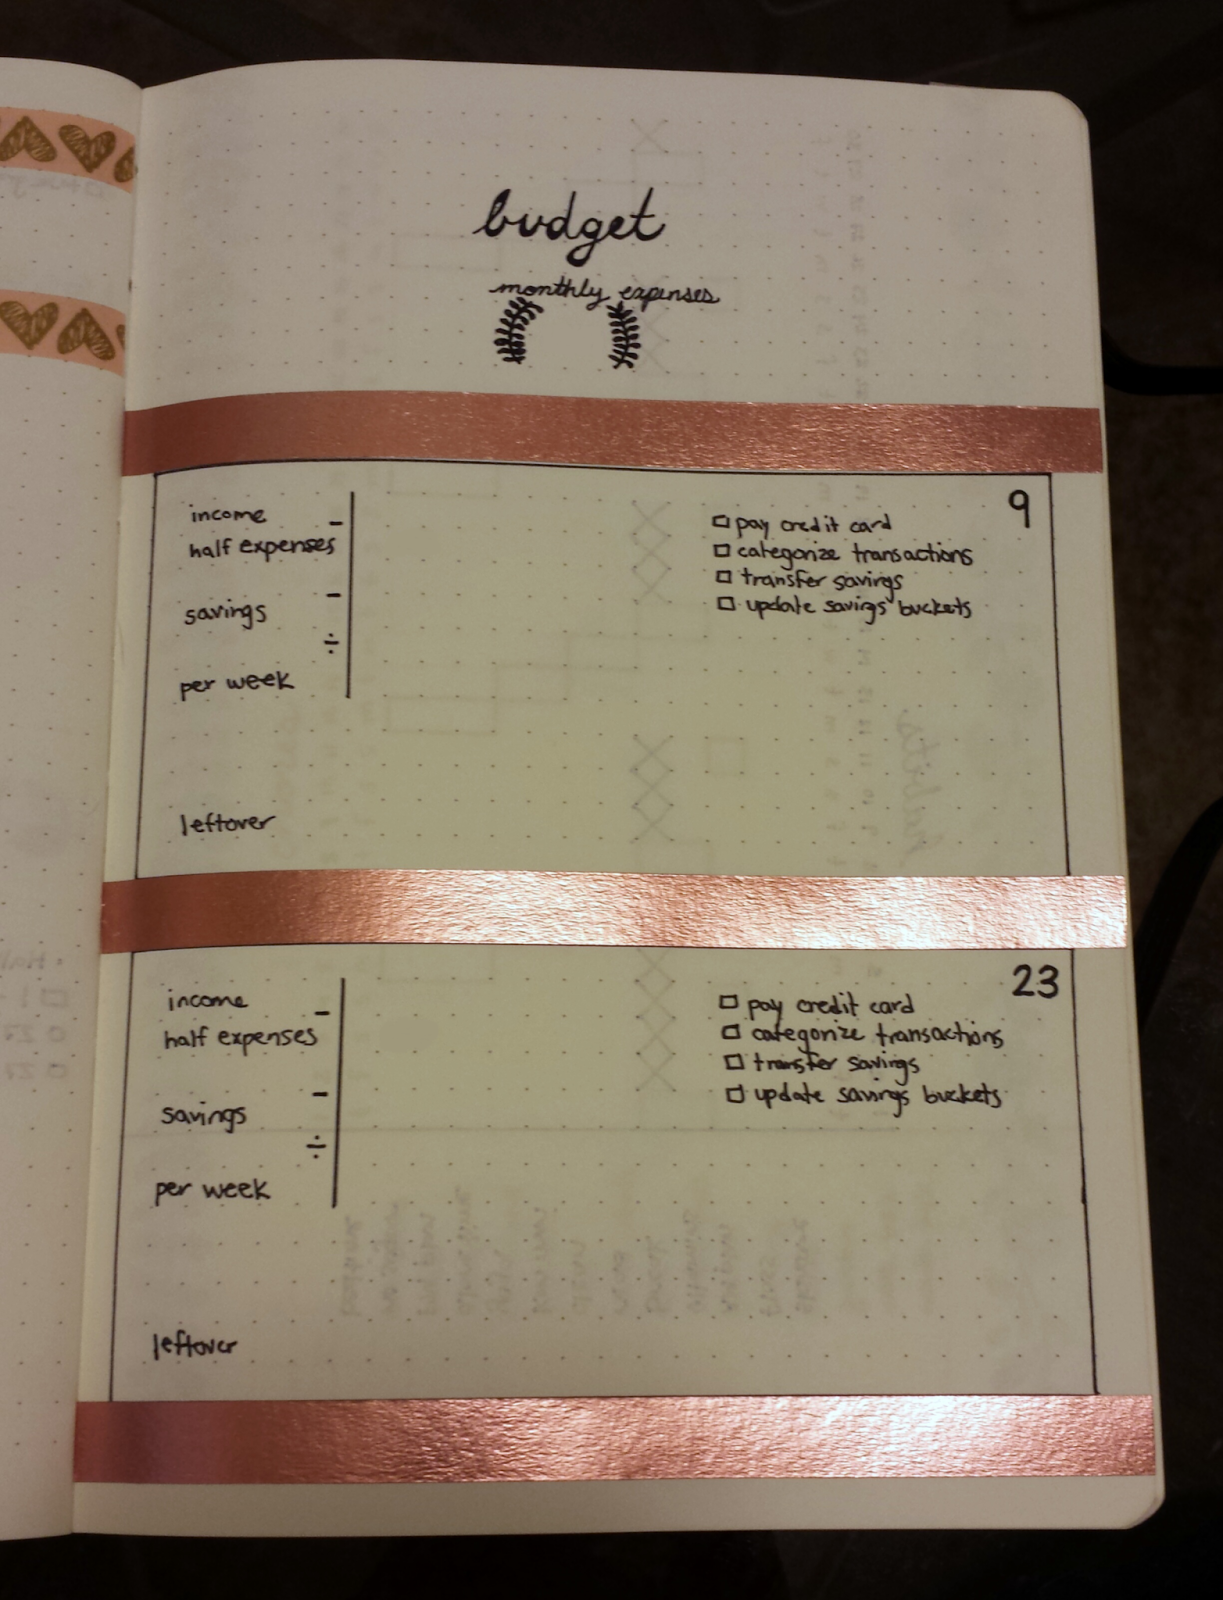 budget
monthly expenses
9
income -
half expenses
-
savings
÷
per week
leftover
□ pay credit card
□ categorize transactions
□ transfer savings
□ update savings buckets
23
income -
half expenses
-
savings
÷
per week
leftover
□ pay credit card
□ categorize transactions
□ transfer savings
□ update savings buckets